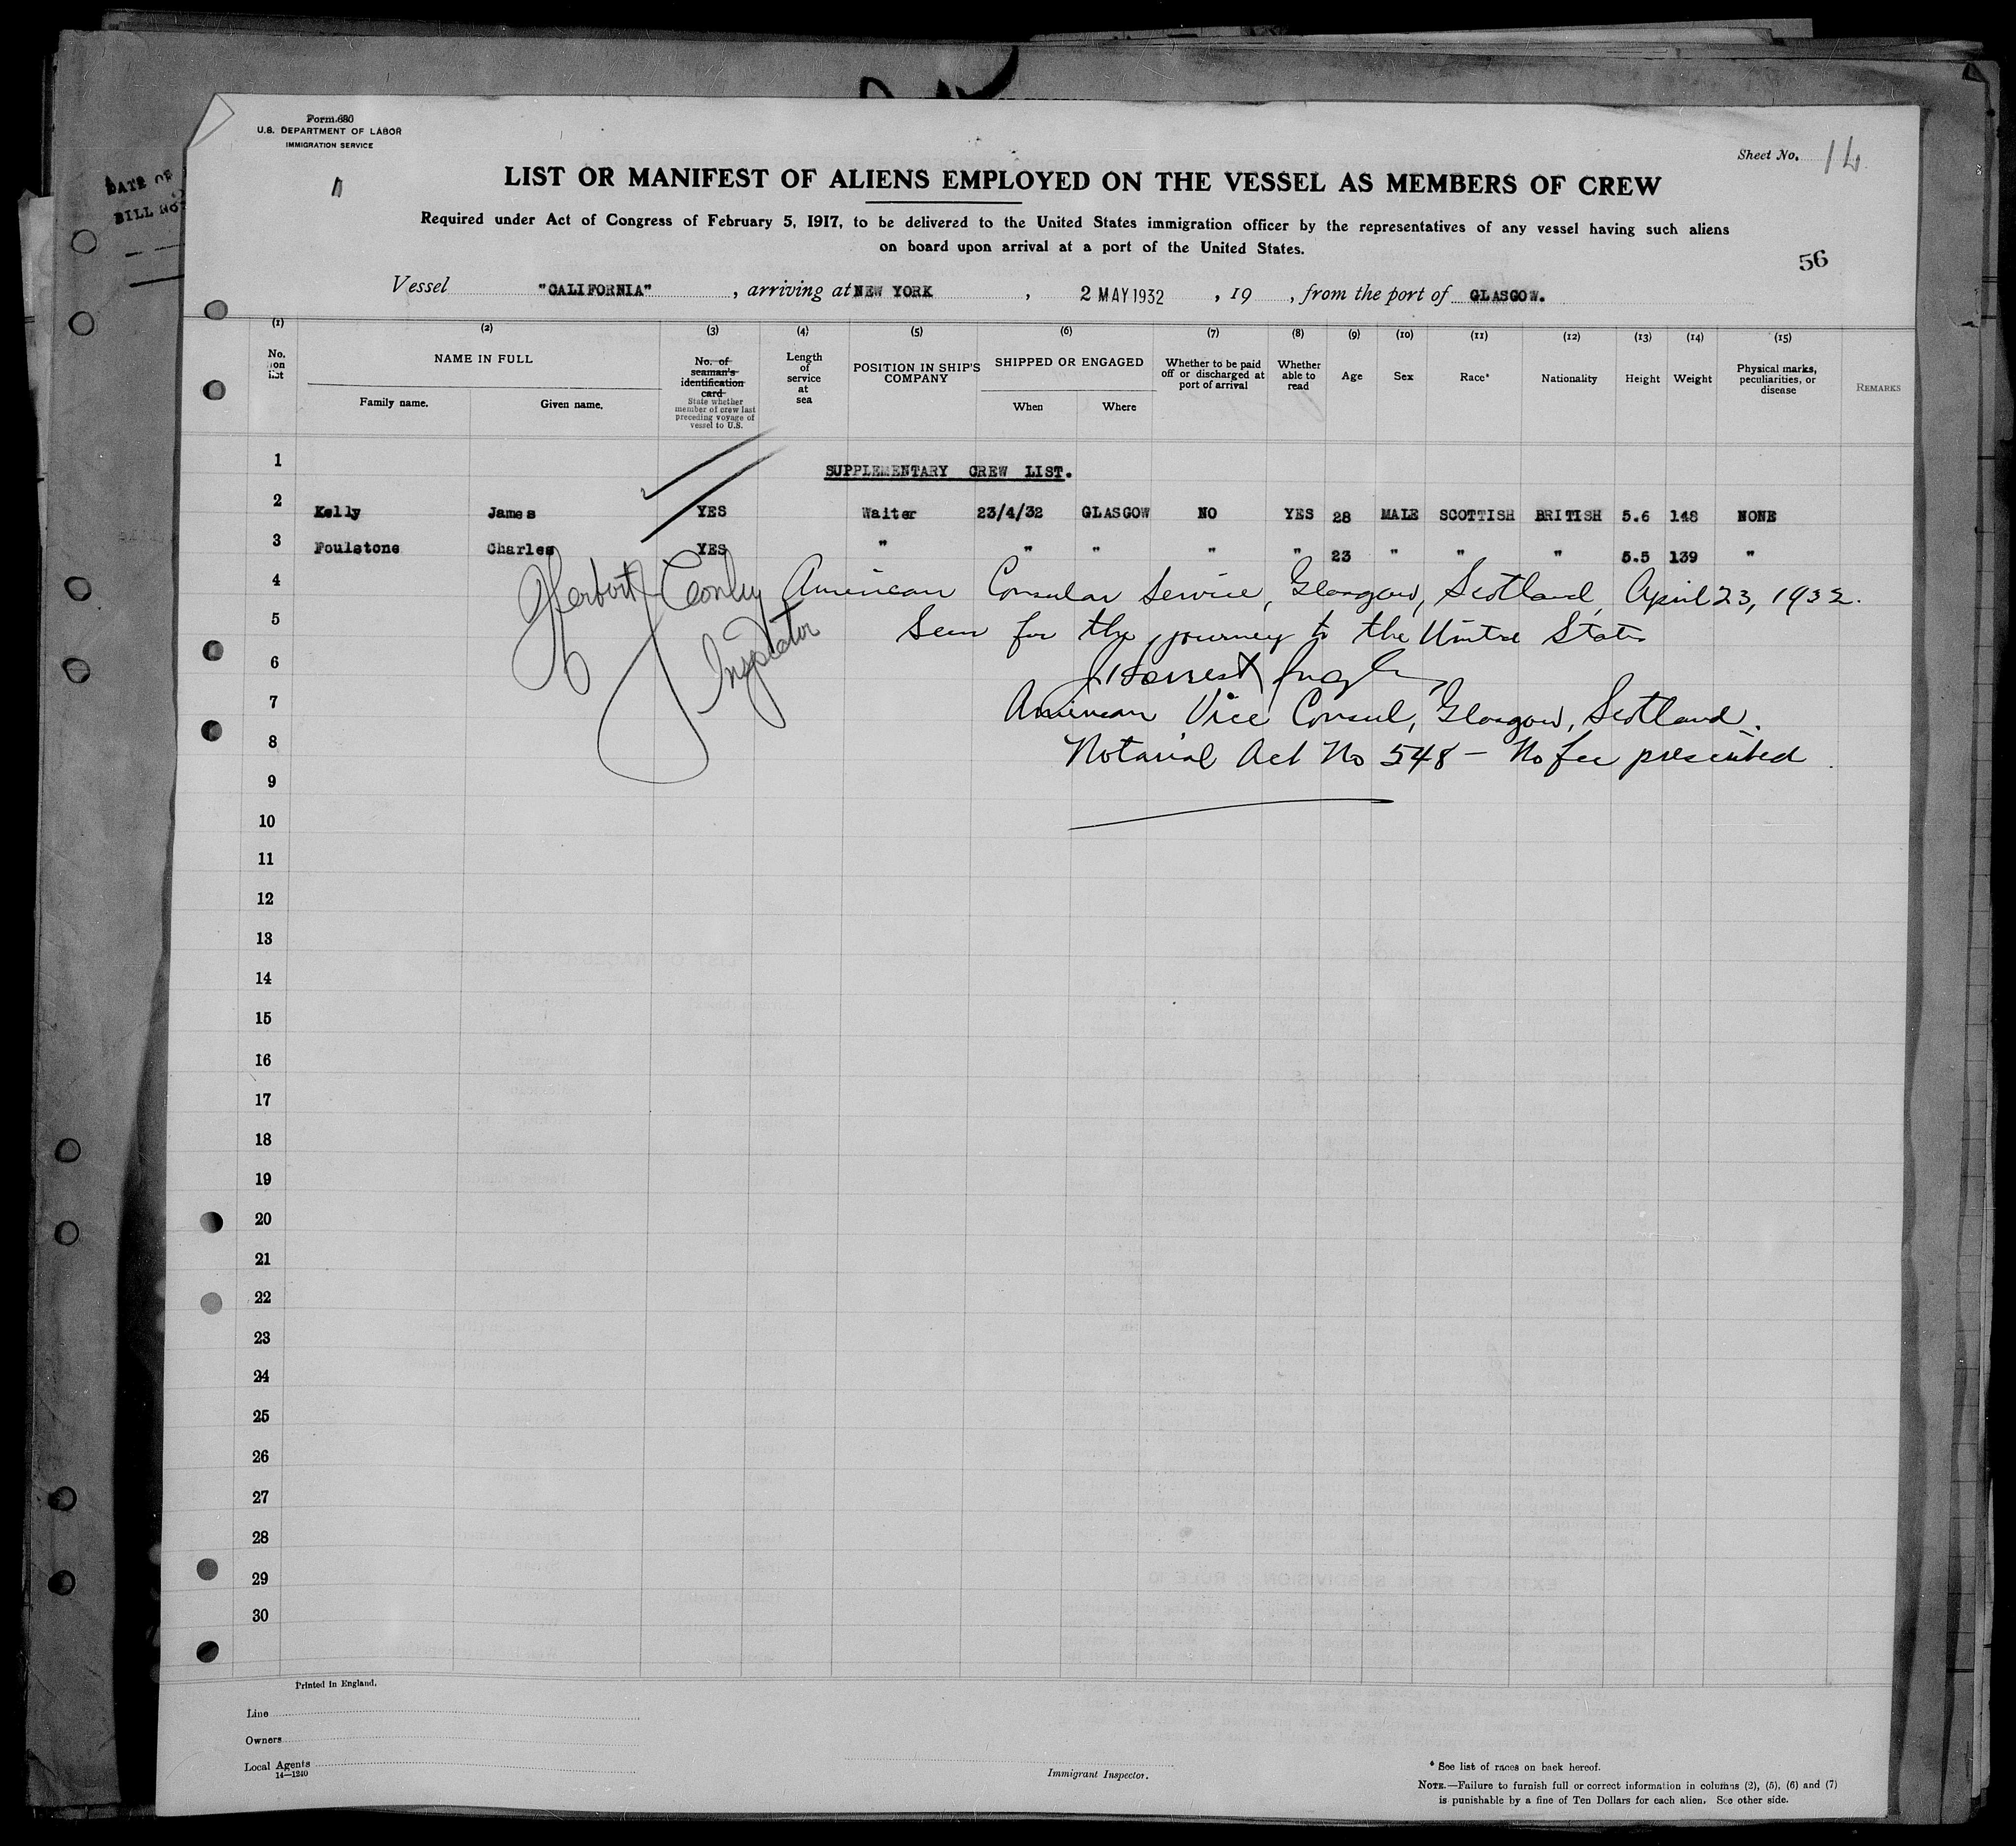 Form 680
U.S. DEPARTMENT OF LABOR
IMMIGRATION SERVICE
Sheet No. 14
LIST OR MANIFEST OF ALIENS EMPLOYED ON THE VESSEL AS MEMBERS OF CREW
Required under Act of Congress of February 5, 1917, to be delivered to the United States immigration officer by the representatives of any vessel having such aliens
on board upon arrival at a port of the United States.
56
Vessel "CALIFORNIA", arriving at NEW YORK, 2 MAY 1932, 19 , from the port of GLASGOW.
DATE OF
BILL NO
(1) (2) (3) (4) (5) (6) (7) (8) (9) (10) (11) (12) (13) (14) (15)
No. on list
NAME IN FULL
Family name. Given name.
No. of seaman's identification card
State whether member of crew last preceding voyage of vessel to U.S.
Length of service at sea
POSITION IN SHIP'S COMPANY
SHIPPED OR ENGAGED
When Where
Whether to be paid off or discharged at port of arrival
Whether able to read
Age
Sex
Race*
Nationality
Height
Weight
Physical marks, peculiarities, or disease
REMARKS
1 SUPPLEMENTARY CREW LIST.
2 Kelly James YES Waiter 23/4/32 GLASGOW NO YES 28 MALE SCOTTISH BRITISH 5.6 148 NONE
3 Foulstone Charles YES " " " " " 23 " " " 5.5 139 "
4 American Consular Service, Glasgow, Scotland, April 23, 1932.
5 Seen for the journey to the United States
Herbert
Inspector
6 Forrest
7 American Vice Consul, Glasgow, Scotland.
8 Notarial Act No 548 - No fee prescribed
9
10
11
12
13
14
15
16
17
18
19
20
21
22
23
24
25
26
27
28
29
30
Printed in England.
Line
Owners
Local Agents
14—1240
Immigrant Inspector.
* See list of races on back hereof.
NOTE.—Failure to furnish full or correct information in columns (2), (5), (6) and (7)
is punishable by a fine of Ten Dollars for each alien. See other side.